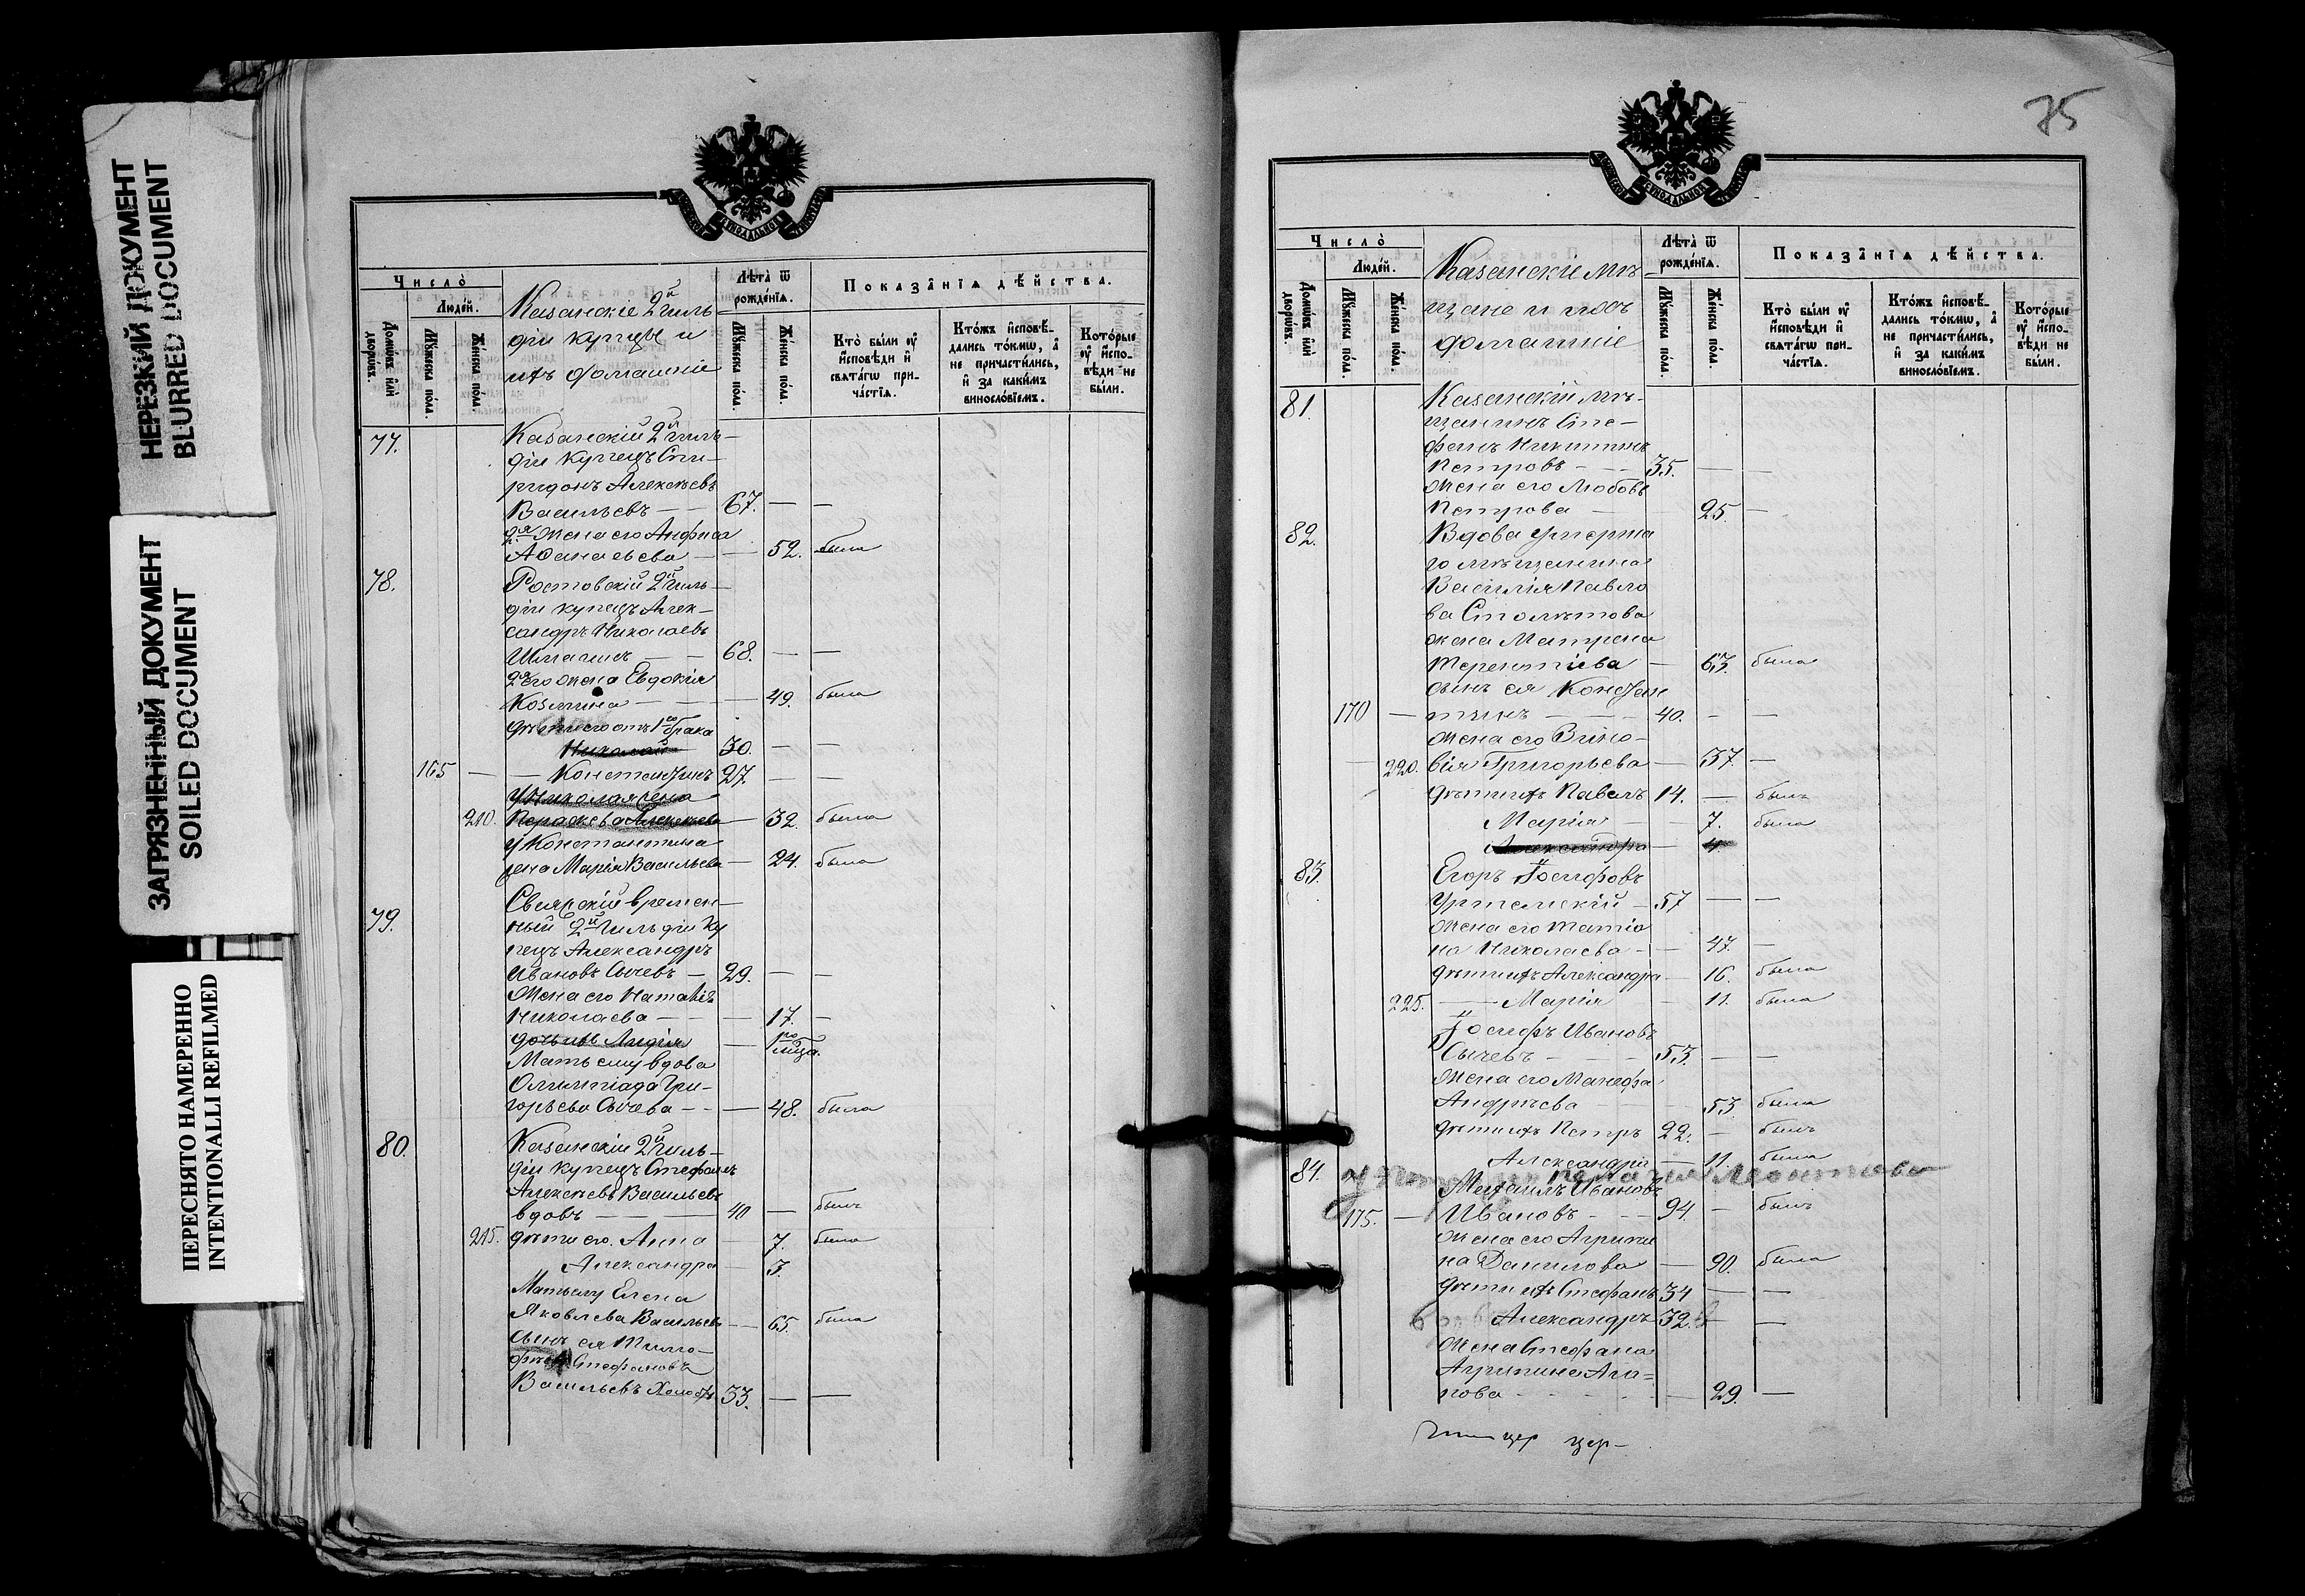 НЕРЕЗКИЙ ДОКУМЕНТ
BLURRED DOCUMENT
ЗАГРЯЗНЕННЫЙ ДОКУМЕНТ
SOILED DOCUMENT
ПЕРЕСНЯТО НАМЕРЕННО
INTENTIONALLI REFILMED
Число̀
Людéй.
Домѡ́въ и҆лѝ дворѡ́въ.
Мꙋ́жеска по́ла.
Же́нска по́ла.
Казанскіе 2й гиль-
діи купцы и
ихъ домашніе
Лѣта̀ ѿ рожде́нїѧ.
Мꙋ́жеска по́ла.
Же́нска по́ла.
Показа̑нїѧ дѣ́йства.
Кто̀ бы́ли ᲂу҆ и҆сповѣ́ди и҆ свѧта́гѡ при-
ча́стїѧ.
Кто́жъ и҆сповѣ́-
дались то́кмѡ, а҆
не причасти́лись,
и҆ за каки́мъ
винослові́емъ.
Кото́рые
ᲂу҆ и҆спо-
вѣ́ди не
бы́ли.
77.
Казанскій 2й гиль-
діи купецъ Спи-
ридонъ Алексѣевъ
Васильевъ — — 67. — —
2я жена его Анфиса
Аѳанасьева — — 52. была
78.
Ростовскій 2й гиль-
діи купецъ Алек-
сандръ Николаевъ
Шмагинъ — — 68. — —
2я его жена Евдокія
Козмина — — — 49. была
дѣти его отъ 1го брака
Николай 30. — —
165 — — Константинъ 27. — —
у Николая жена
210. Параскева Алексѣева — 32. была
у Константина
жена Марія Васильева — 24. была
79.
Свіяжскій времен-
ный 2й гильдіи ку
пецъ Александръ
Ивановъ Сычевъ — 29. — —
Жена его Наталія
Николаева — — — 17. —
дочь ихъ Лидія — 1го мца.
Мать ему вдова
Олимпіада Гри-
горьева Сычева — — — 48. была
80.
Казанскій 2й гиль-
діи купецъ Стефанъ
Алексѣевъ Васильевъ
вдовъ — — — 40 — былъ
215. дѣти его. Анна — 7. была
Александра — 3.
Мать ему Елена
Яковлева Васильева — — 65. была
сынъ ея Тимо-
фѣй Стефановъ
Васильевъ Холостъ 33. — —
75
Число̀
Людéй.
Домѡ́въ и҆лѝ дворѡ́въ.
Мꙋ́жеска по́ла.
Же́нска по́ла.
Казанскіе мѣ-
щане и ихъ
домашніе
Лѣта̀ ѿ рожде́нїѧ.
Мꙋ́жеска по́ла.
Же́нска по́ла.
Показа̑нїѧ дѣ́йства.
Кто̀ бы́ли ᲂу҆
и҆сповѣ́ди и҆
свѧта́гѡ при-
ча́стїѧ.
Кто́жъ и҆сповѣ́-
дались то́кмѡ, а҆
не причасти́лись,
и҆ за каки́мъ
винослові́емъ.
Кото́рые
ᲂу҆ и҆спо-
вѣ́ди не
бы́ли.
81.
Казанскій мѣ-
щанинъ Сте-
фанъ Никитинъ
Петровъ — — 35. — —
Жена его Любовь
Петрова — 25. —
82.
Вдова умерша
го мѣщанина
Василія Павло
ва Столѣтова
жена Матрона
Терентіева — 63. была
сынъ ея Констан
170 — тинъ — — 40. — —
Жена его Зино-
220. вія Григорьева — 37. —
дѣти ихъ Павелъ 14. — былъ
Марія — 7. была
Александра — 4.
83.
Егоръ Іосифовъ
Уртминскій — 57 — —
Жена его Татіа
на Николаева — — 47. —
дѣти ихъ Александра — 16. была
225. — Марія — 11. была
Іосифъ Ивановъ
Сычевъ — — — 53. — —
Жена его Манефа
Андрѣева — 53. была
дѣти ихъ Петръ 22. — былъ
Александра — 11. была
у Петра ж. Пелагія Леонтіева
84.
Михаилъ Ивановъ
175. — Ивановъ — — 94. — былъ
Жена его Агрипи
на Данилова — 90. была
дѣти ихъ Стефанъ 34 — —
Александръ 32. — —
Жена Стефана
Агрипина Ага-
пова — — — 29. —